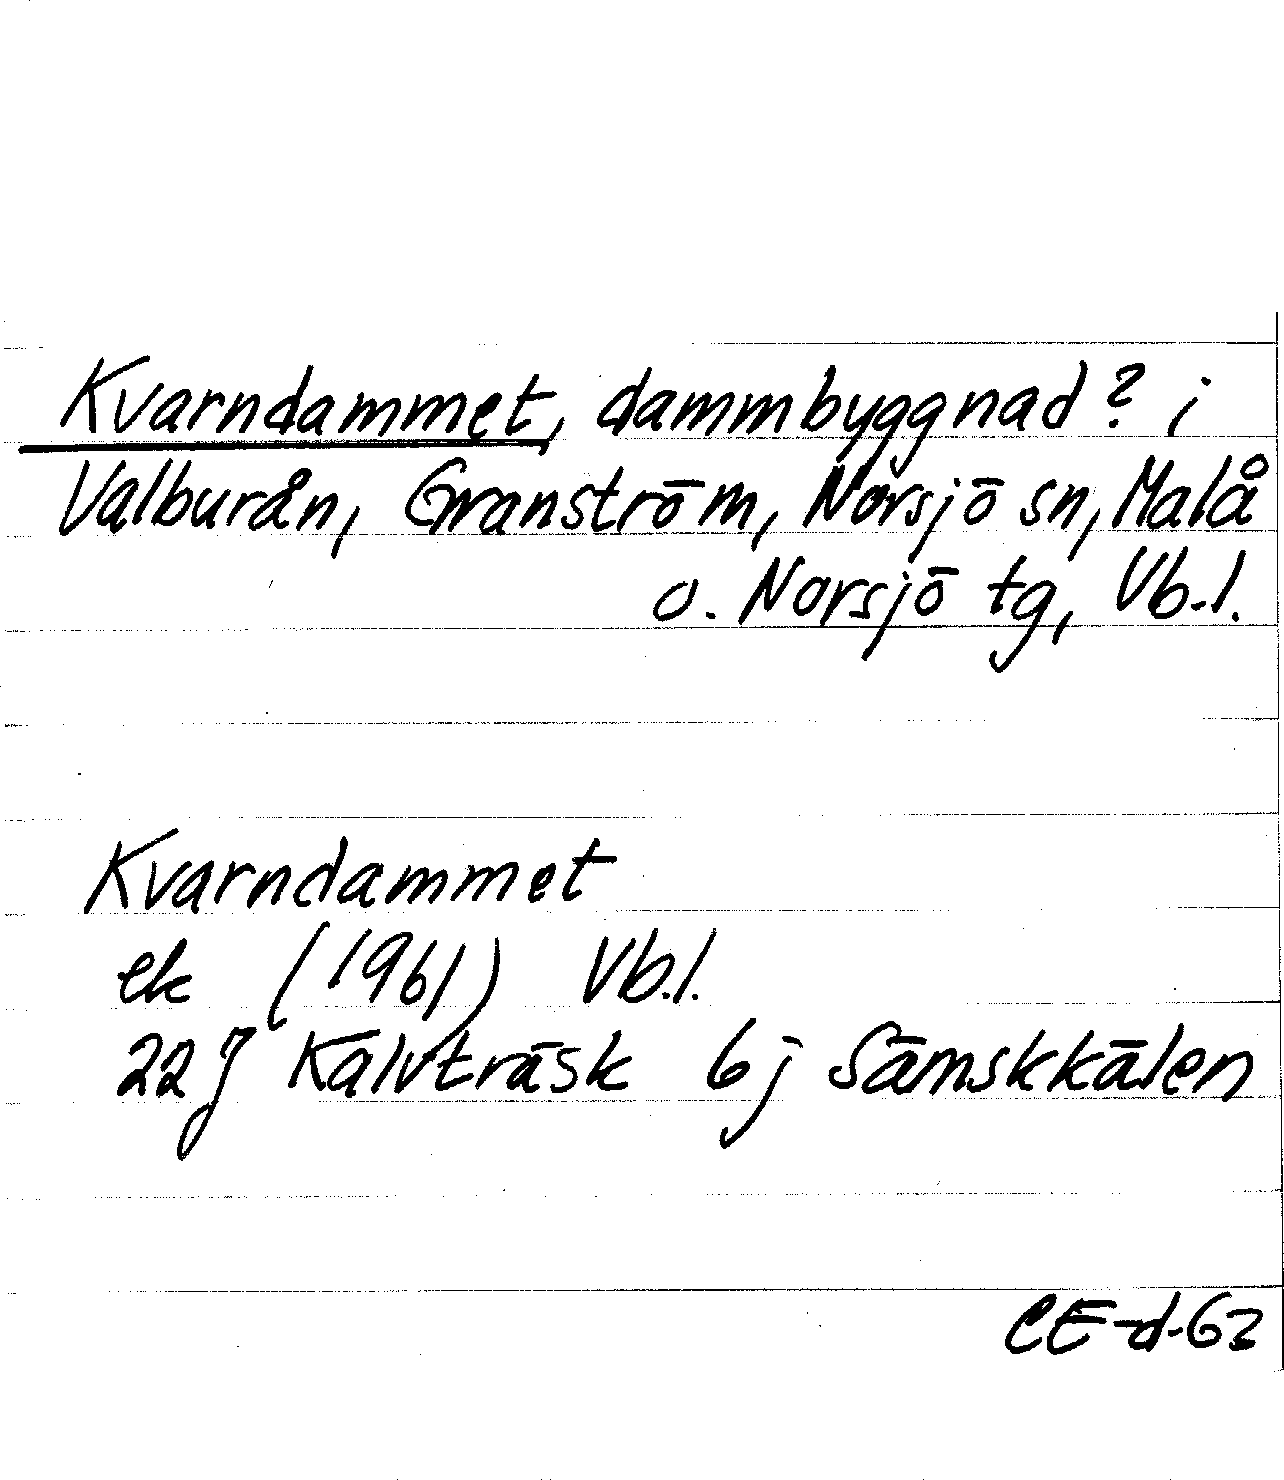 Kvarndammet, dammbyggnad? i
Valburån, Granström, Norsjö sn, Malå
o. Norsjö tg, Vb.l.
Kvarndammet
ek (1961) Vb.l.
22J Kalvträsk 6j Sämskkälen
CE-d-62